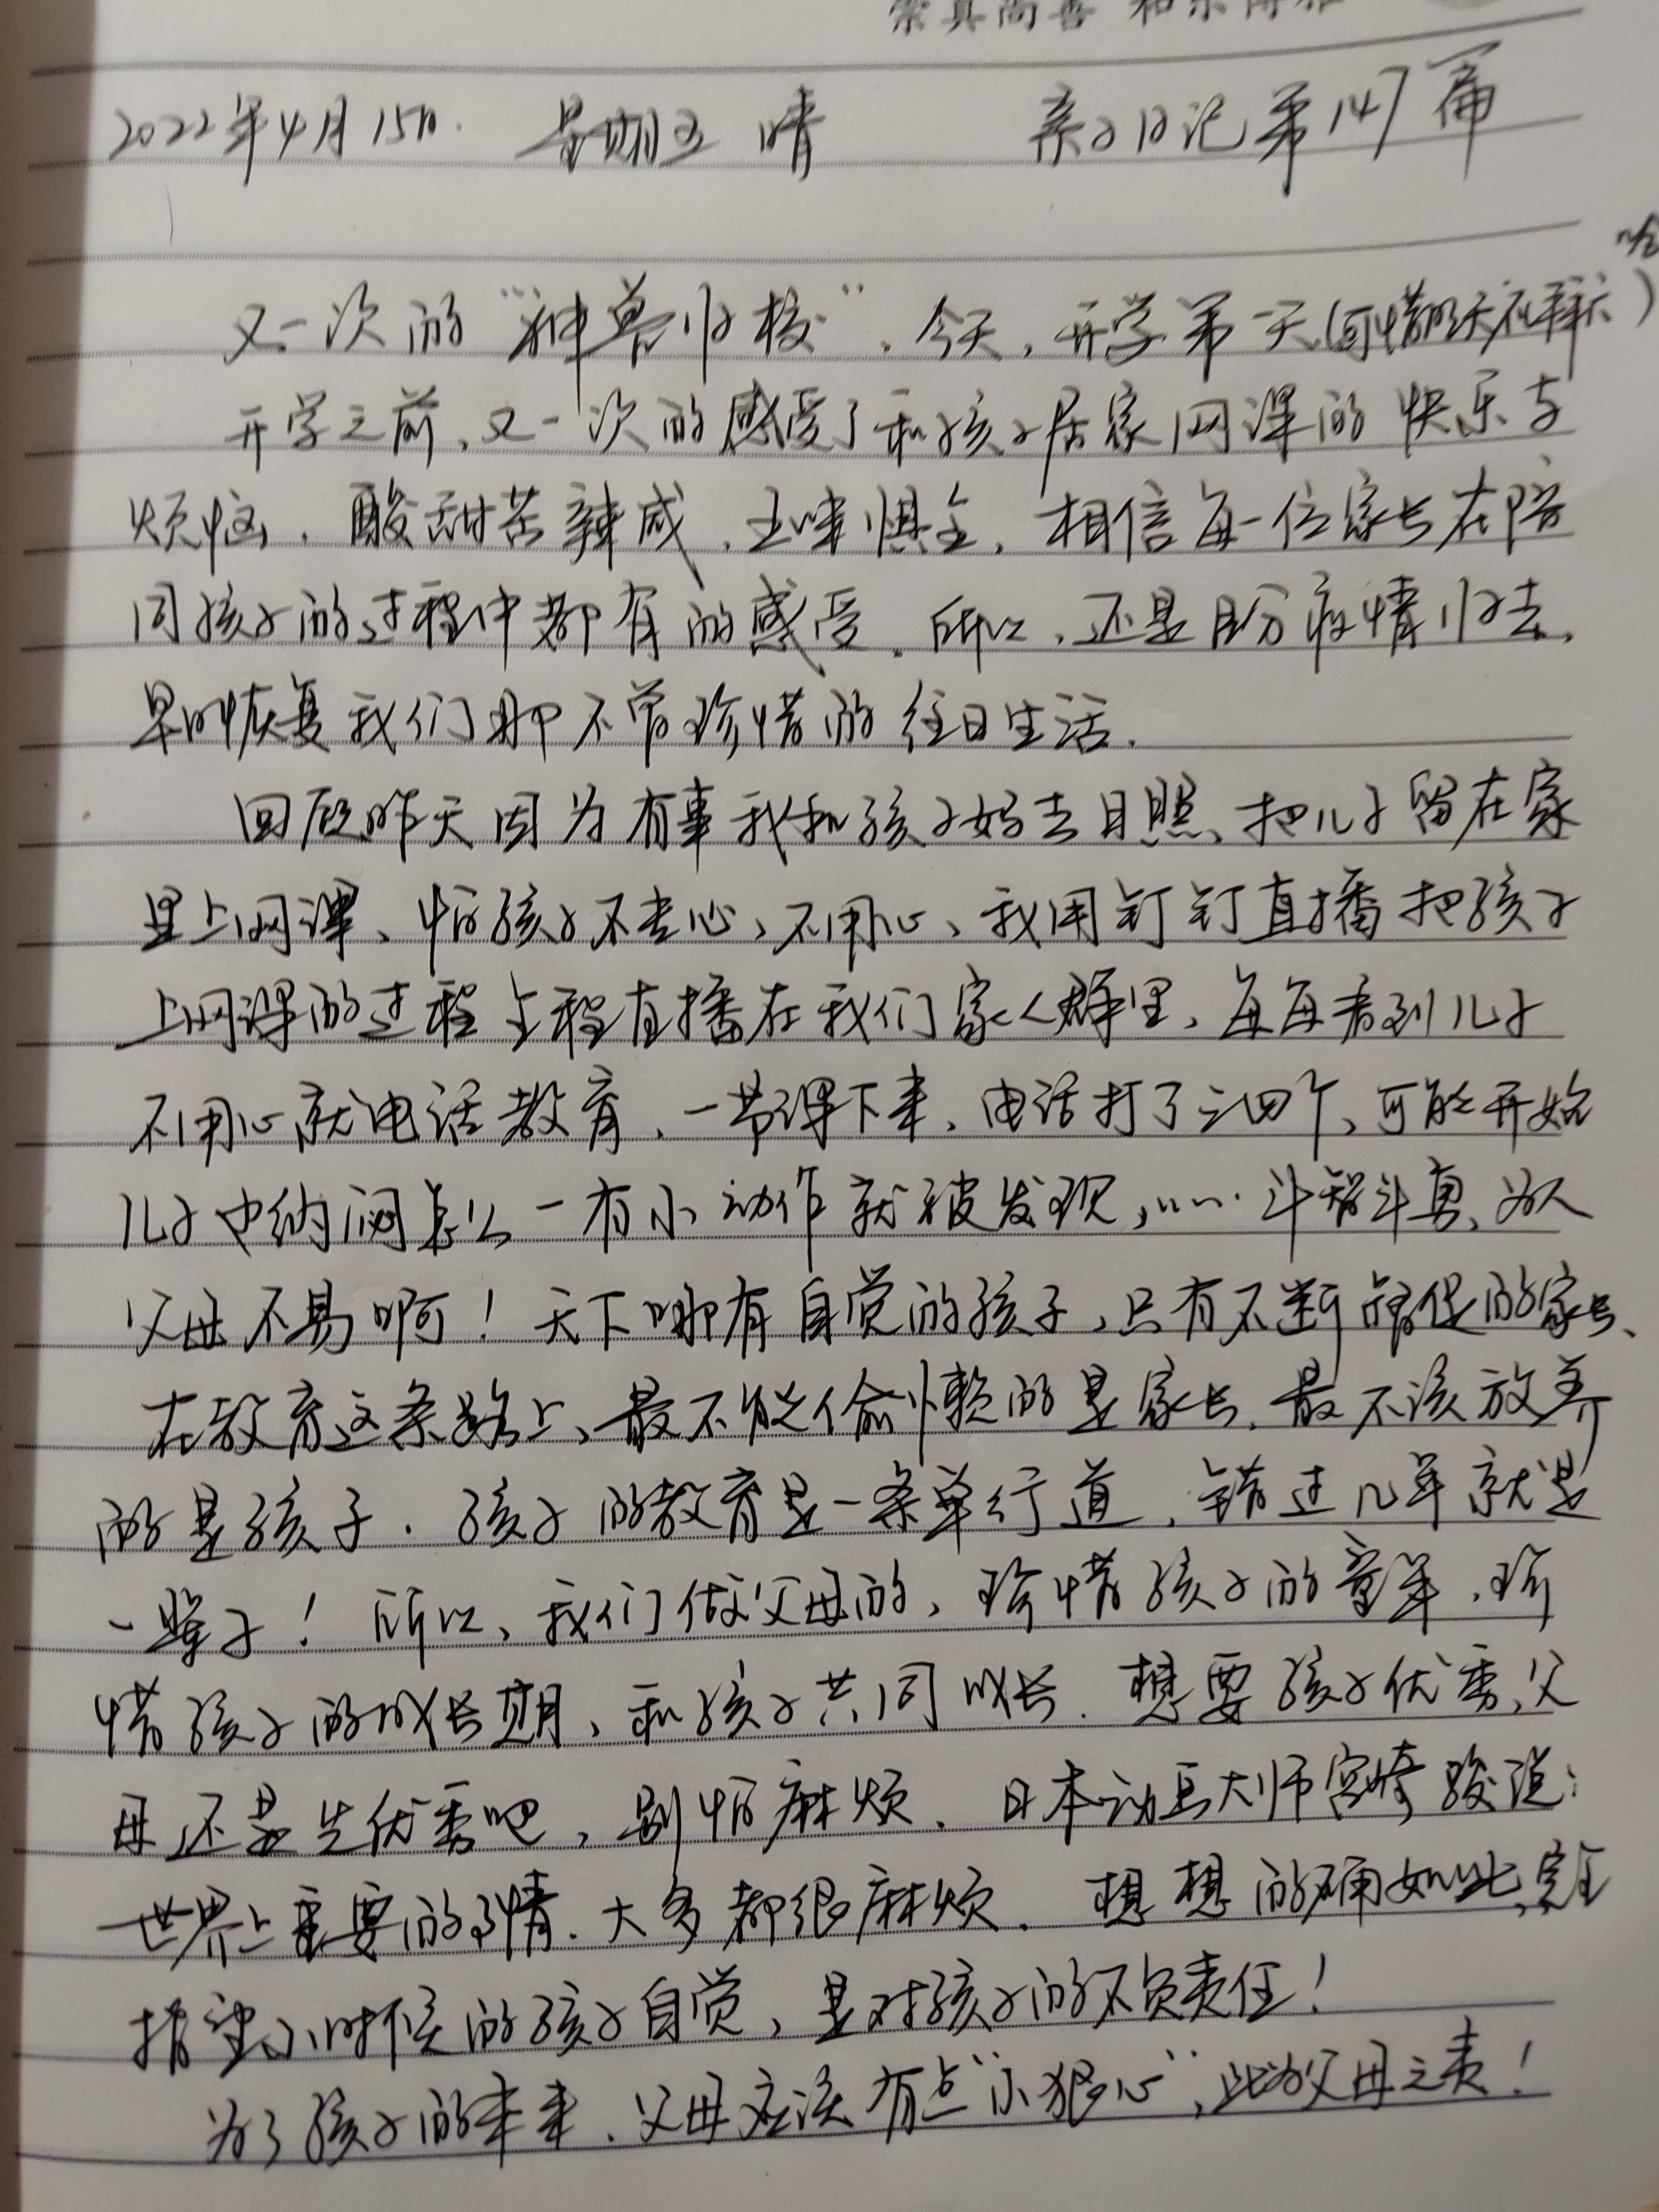 崇真尚善 和乐博雅
2022年4月15日. 星期五 晴 亲子日记第147篇
又一次的“神兽归校”,今天,开学第一天(可惜明天在
开学之前,又一次的感受了和孩子居家网课的快乐与
烦恼,酸甜苦辣咸,五味惧全,相信每一位家长在陪
同孩子的过程中都有的感受.所以,还是盼疫情归去,
早日恢复我们那不曾珍惜的往日生活.
回顾昨天因为有事我和孩子妈去日照、把儿子留在家
里上网课、怕孩子不专心、不用心、我用钉钉直播把孩子
上网课的过程全程直播在我们家人群里、每每看到儿子
不用心就电话教育、一节课下来、电话打了三四个、可能开始
儿子也纳闷怎么一有小动作就被发现,……斗智斗勇、为人
父母不易啊!天下哪有自觉的孩子,只有不断督促的家长、
在教育这条路上、最不能偷懒的是家长.最不该放养
的是孩子.孩子的教育是一条单行道,错过几年就是
一辈子!所以、我们做父母的,珍惜孩子的童年,珍
惜孩子的成长期、和孩子共同成长.想要孩子优秀,父
母还是先优秀吧,别怕麻烦、日本动画大师宫崎骏说:
世界上重要的事情.大多都很麻烦.想想的确如此,完全
指望小时候的孩子自觉,是对孩子的不负责任!
为了孩子的未来.父母应该有点“小狠心”,此为父母之责!